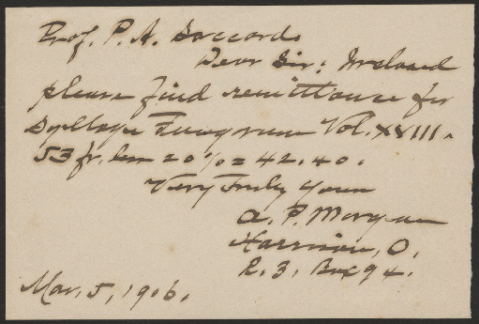 Prof. P. A. Saccardo
Dear Sir: Inclosed
please find remittance for
Sylloge Fungorum Vol. XVIII.
53 fr. less 20% = 42.40.
Very Truly Yours
A. P. Morgan
Harrison, O.
R. 3. Box 94.
Mar. 5, 1906.